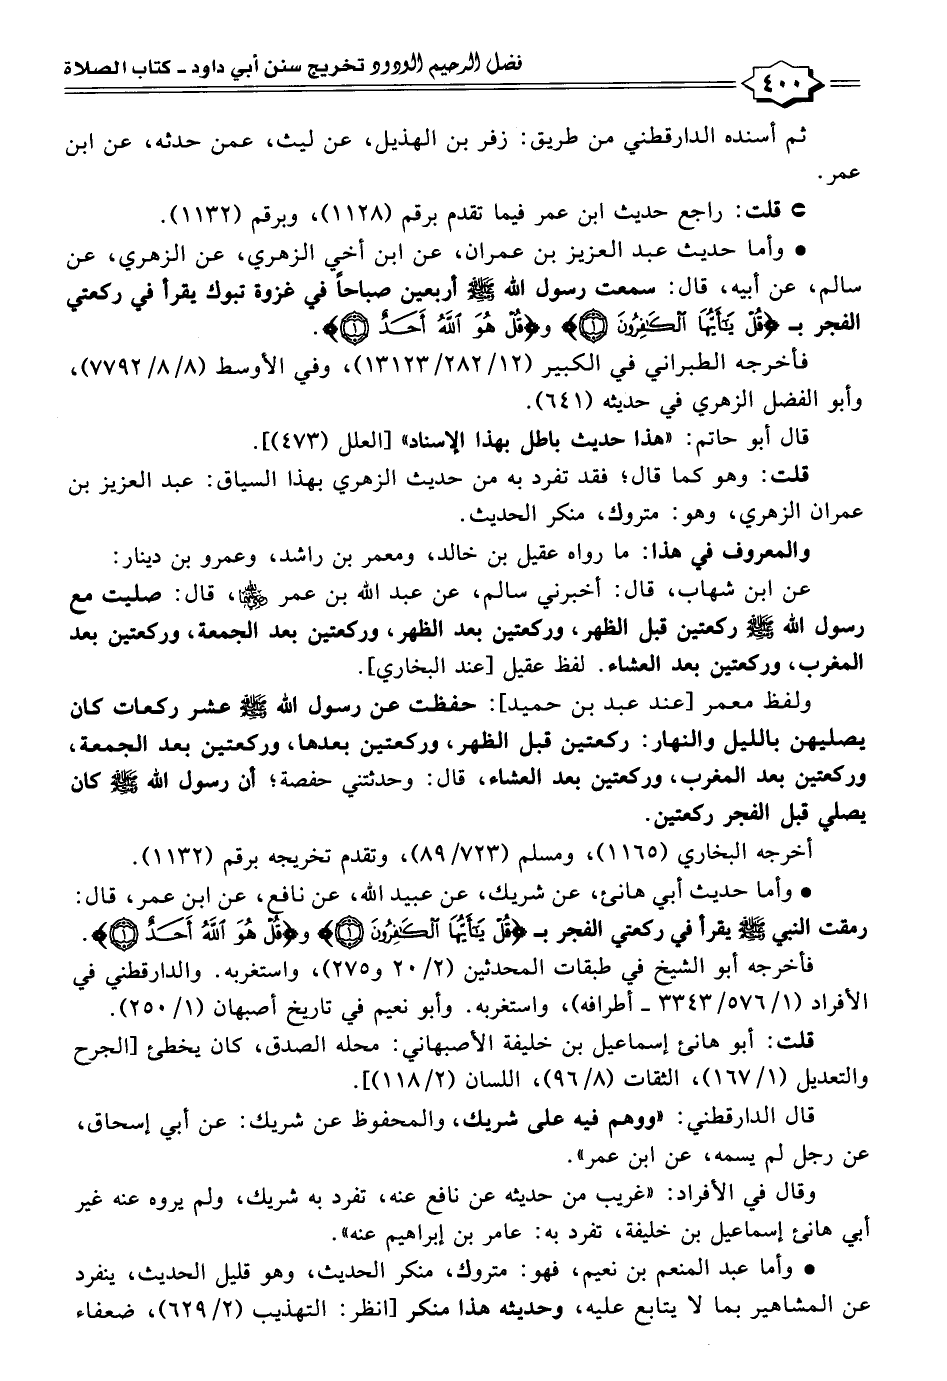 فضل الرحيم الودود تخريج سنن أبي داود - كتاب الصلاة
٤٠٠
ثم أسنده الدارقطني من طريق: زفر بن الهذيل، عن ليث، عمن حدثه، عن ابن
عمر.
قلت: راجع حديث ابن عمر فيما تقدم برقم (١١٢٨)، وبرقم (١١٣٢).
• وأما حديث عبد العزيز بن عمران، عن ابن أخي الزهري، عن الزهري، عن
سالم، عن أبيه، قال: سمعت رسول الله ﷺ أربعين صباحاً في غزوة تبوك يقرأ في ركعتي
الفجر بـ ﴿قُلْ يَـٰٓأَيُّهَا ٱلْكَـٰفِرُونَ ۝١﴾ و﴿قُلْ هُوَ ٱللَّهُ أَحَدٌ ۝١﴾.
فأخرجه الطبراني في الكبير (١٢/ ٢٨٢/ ١٣١٢٣)، وفي الأوسط (٨/ ٨/ ٧٧٩٢)،
وأبو الفضل الزهري في حديثه (٦٤١).
قال أبو حاتم: «هذا حديث باطل بهذا الإسناد» [العلل (٤٧٣)].
قلت: وهو كما قال؛ فقد تفرد به من حديث الزهري بهذا السياق: عبد العزيز بن
عمران الزهري، وهو: متروك، منكر الحديث.
والمعروف في هذا: ما رواه عقيل بن خالد، ومعمر بن راشد، وعمرو بن دينار:
عن ابن شهاب، قال: أخبرني سالم، عن عبد الله بن عمر رضي الله عنهما، قال: صليت مع
رسول الله ﷺ ركعتين قبل الظهر، وركعتين بعد الظهر، وركعتين بعد الجمعة، وركعتين بعد
المغرب، وركعتين بعد العشاء. لفظ عقيل [عند البخاري].
ولفظ معمر [عند عبد بن حميد]: حفظت عن رسول الله ﷺ عشر ركعات كان
يصليهن بالليل والنهار: ركعتين قبل الظهر، وركعتين بعدها، وركعتين بعد الجمعة،
وركعتين بعد المغرب، وركعتين بعد العشاء، قال: وحدثتني حفصة؛ أن رسول الله ﷺ كان
يصلي قبل الفجر ركعتين.
أخرجه البخاري (١١٦٥)، ومسلم (٧٢٣/ ٨٩)، وتقدم تخريجه برقم (١١٣٢).
• وأما حديث أبي هانئ، عن شريك، عن عبيد الله، عن نافع، عن ابن عمر، قال:
رمقت النبي ﷺ يقرأ في ركعتي الفجر بـ ﴿قُلْ يَـٰٓأَيُّهَا ٱلْكَـٰفِرُونَ ۝١﴾ و﴿قُلْ هُوَ ٱللَّهُ أَحَدٌ ۝١﴾.
فأخرجه أبو الشيخ في طبقات المحدثين (٢/ ٢٠ و٢٧٥)، واستغربه. والدارقطني في
الأفراد (١/ ٥٧٦/ ٣٣٤٣ - أطرافه)، واستغربه. وأبو نعيم في تاريخ أصبهان (١/ ٢٥٠).
قلت: أبو هانئ إسماعيل بن خليفة الأصبهاني: محله الصدق، كان يخطئ [الجرح
والتعديل (١/ ١٦٧)، الثقات (٨/ ٩٦)، اللسان (٢/ ١١٨)].
قال الدارقطني: «ووهم فيه على شريك، والمحفوظ عن شريك: عن أبي إسحاق،
عن رجل لم يسمه، عن ابن عمر».
وقال في الأفراد: «غريب من حديثه عن نافع عنه، تفرد به شريك، ولم يروه عنه غير
أبي هانئ إسماعيل بن خليفة، تفرد به: عامر بن إبراهيم عنه».
• وأما عبد المنعم بن نعيم، فهو: متروك، منكر الحديث، وهو قليل الحديث، ينفرد
عن المشاهير بما لا يتابع عليه، وحديثه هذا منكر [انظر: التهذيب (٢/ ٦٢٩)، ضعفاء